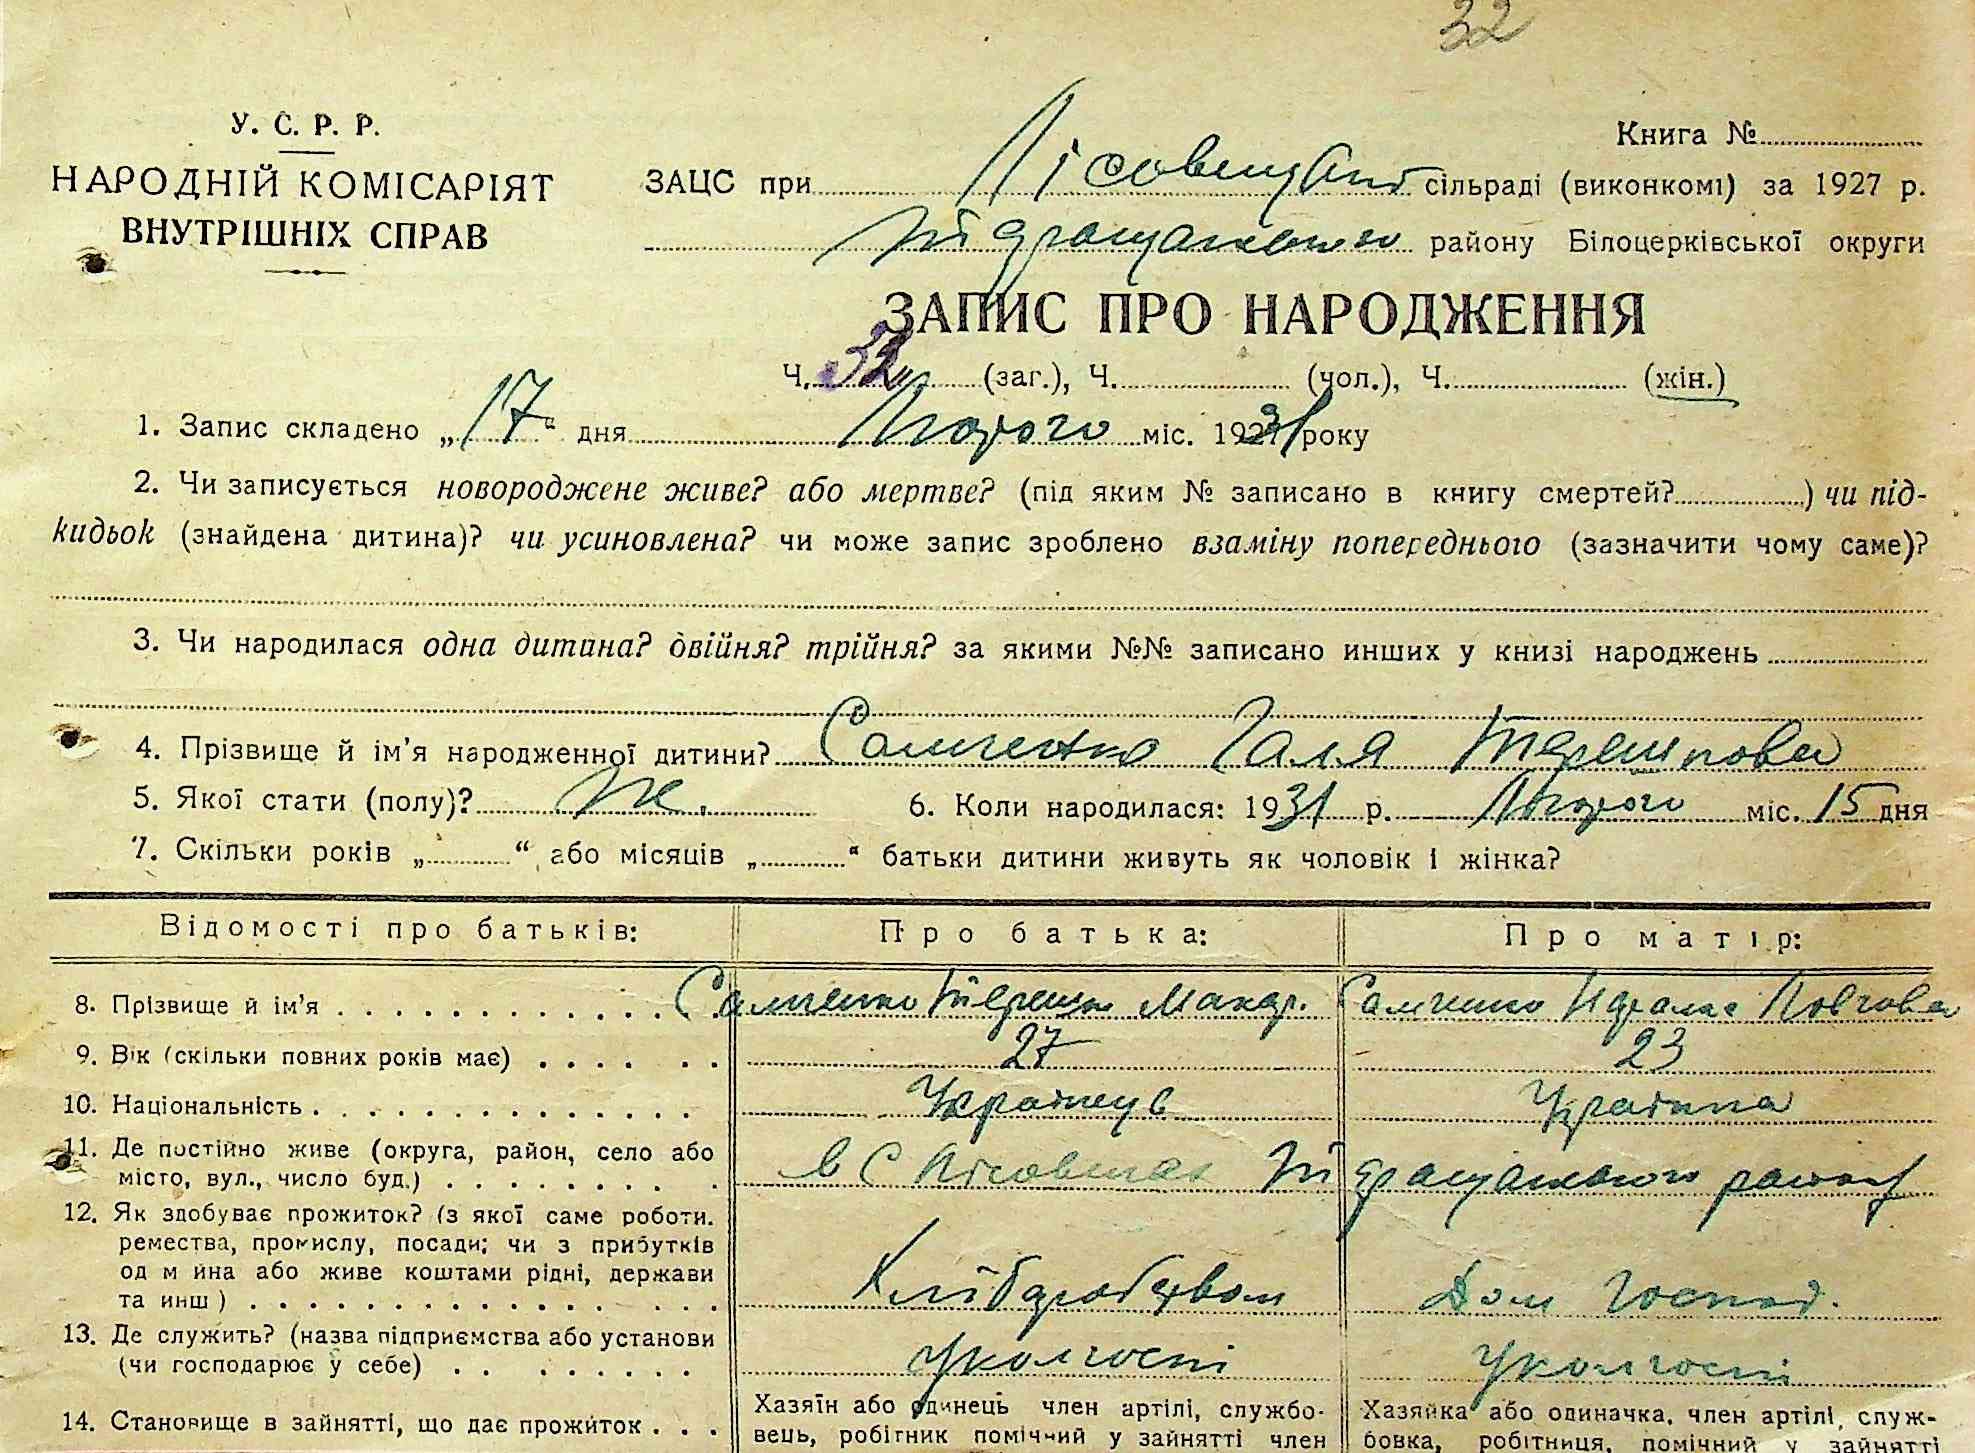 32
У. С. Р. Р.
НАРОДНІЙ КОМІСАРІЯТ
ВНУТРІШНІХ СПРАВ
Книга №
ЗАЦС при сільраді (виконкомі) за 1927 р.
району Білоцерківської округи
ЗАПИС ПРО НАРОДЖЕННЯ
Ч. 32 (заг.), Ч. (чол.), Ч. (жін.)
1. Запис складено „17“ дня Лютого міс. 1931 року
2. Чи записується новороджене живе? або мертве? (під яким № записано в книгу смертей?) чи під-
кидьок (знайдена дитина)? чи усиновлена? чи може запис зроблено взаміну попереднього (зазначити чому саме)?
3. Чи народилася одна дитина? двійня? трійня? за якими №№ записано инших у книзі народжень
4. Прізвище й ім’я народженної дитини? Самченко Галя Терешкова
5. Якої стати (полу)? Ж. 6. Коли народилася: 1931 р. Лютого міс. 15 дня
7. Скільки років „ “ або місяців „ “ батьки дитини живуть як чоловік і жінка?
Відомості про батьків: Про батька: Про матір:
8. Прізвище й ім’я Самченко Терешко Макар. Самченко
9. Вік (скільки повних років має) 27 23
10. Національність Українець Українка
11. Де постійно живе (округа, район, село або
місто, вул., число буд.) в С району
12. Як здобуває прожиток? (з якої саме роботи.
ремества, промислу, посади; чи з прибутків
од м йна або живе коштами рідні, держави
та инш) Хліборобством Дом Господ.
13. Де служить? (назва підприємства або установи
(чи господарює у себе) У колгоспі У колгоспі
14. Становище в зайнятті, що дає прожиток Хазяїн або одинець член артілі, службо- Хазяйка або одиначка, член артілі, служ-
вець, робітник помічний у зайнятті член бовка, робітниця, помічний у зайнятті